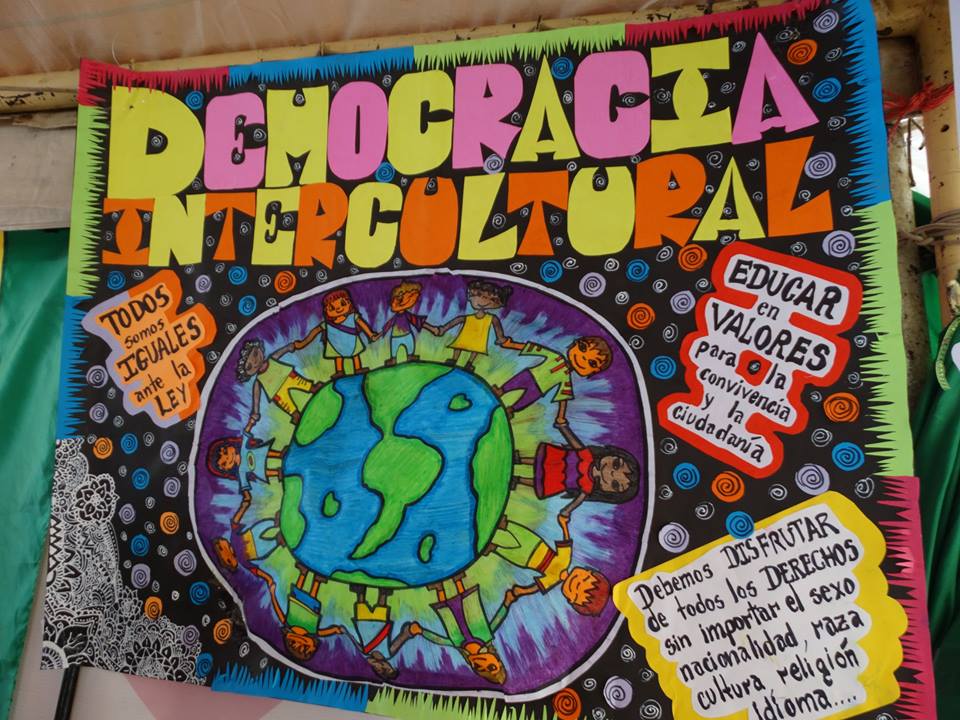 DEMOCRACIA
INTERCULTURAL
TODOS
somos
IGUALES
ante la
LEY
EDUCAR
en
VALORES
para la
convivencia
y la
ciudadanía
Debemos DISFRUTAR
de todos los DERECHOS
sin importar el sexo
nacionalidad, raza
cultura religión
Idioma....